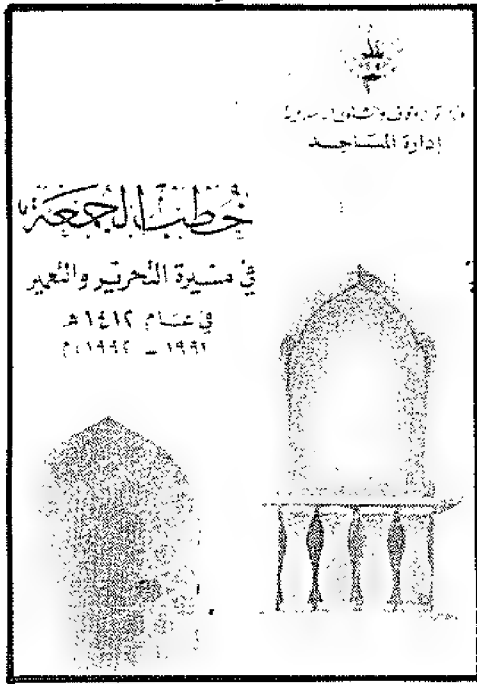 وزارة الأوقاف والشئون الإسلامية
إدارة المساجد
خطب الجمعة
في مسيرة التحرير والتعمير
في عام ١٤١٢ هـ
١٩٩١ - ١٩٩٢ م